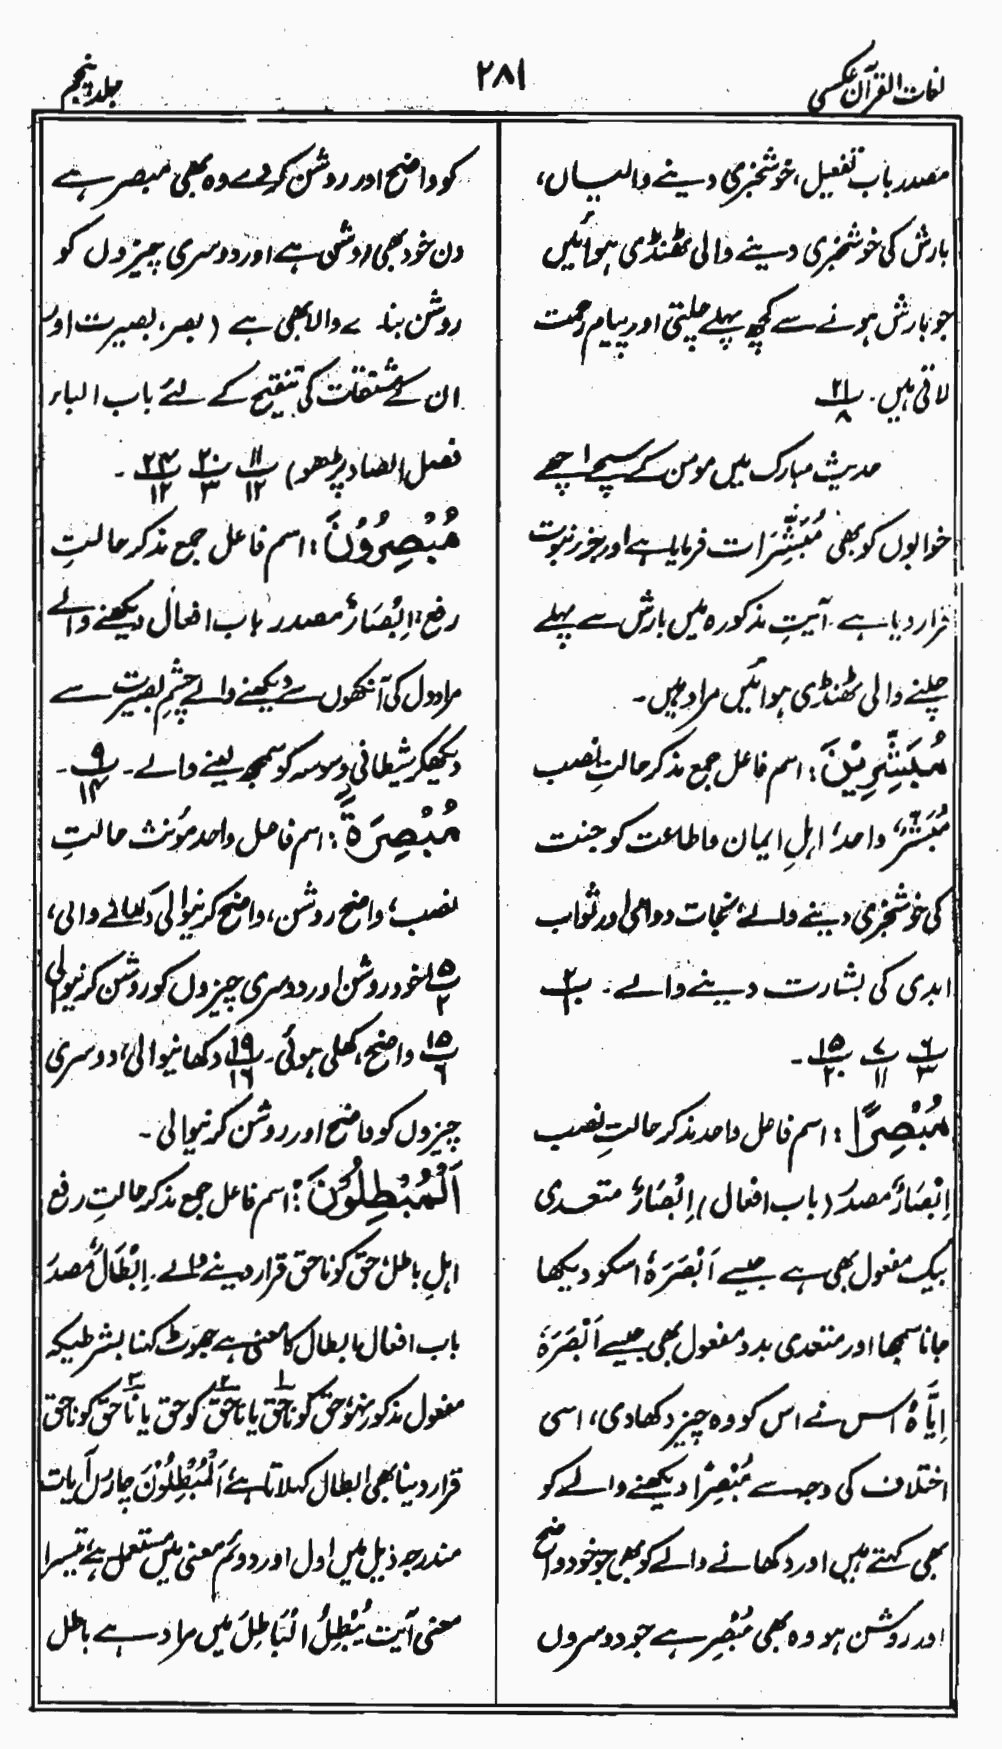 لغات القرآن عکسی
۲۸۱
جلد پنجم
مصدر باب تفعیل، خوشخبری دینے والیاں،
بارش کی خوشخبری دینے والی ٹھنڈی ہوائیں
جو بارش ہونے سے کچھ پہلے چلتی اور پیام رحمت
لاتی ہیں۔ ۲۱/۸
حدیث مبارک میں مومن کے سچے اچھے
خوابوں کو بھی مُبَشِّرَات فرمایا ہے اور جزء نبوت
قرار دیا ہے۔ آیتِ مذکورہ میں بارش سے پہلے
چلنے والی ٹھنڈی ہوائیں مراد ہیں۔
مُبَشِّرِیْنَ: اسم فاعل جمع مذکر حالتِ نصب
مُبَشِّرٌ واحد، اہلِ ایمان و اطاعت کو جنت
کی خوشخبری دینے والے، نجات دوامی اور ثواب
ابدی کی بشارت دینے والے۔ ۲
۶/۳ ۷/۱۱ ۱۵/۲۰۔
مُبْصِرًا: اسم فاعل واحد مذکر حالتِ نصب
اِبْصَارٌ مصدر (باب افعال) اِبْصَارٌ متعدی
بیک مفعول بھی ہے جیسے اَبْصَرَہٗ اسکو دیکھا
جانا سمجھا اور متعدی بدو مفعول بھی جیسے اَبْصَرَہٗ
اِیَّاہُ اس نے اس کو وہ چیز دکھادی، اسی
اختلاف کی وجہ سے مُبْصِرٌ دیکھنے والے کو
بھی کہتے ہیں اور دکھانے والے کو بھی جو خود واضح
اور روشن ہو وہ بھی مُبْصِر ہے جو دوسروں
کو واضح اور روشن کر دے وہ بھی مبصر ہے
دن خود بھی روشن ہے اور دوسری چیزوں کو
روشن بنانے والا بھی ہے (بصر، بصیرت اور
ان کے مشتقات کی تنقیح کے لئے باب الباء
فصل الصاد پڑھو) ۱۱/۱۲ ۲۰/۳ ۲۴/۱۲۔
مُبْصِرُوْنَ: اسم فاعل جمع مذکر حالتِ
رفع، اِبْصَارٌ مصدر باب افعال دیکھنے والے
مراد دل کی آنکھوں سے دیکھنے والے چشمِ بصیرت سے
دیکھکر شیطانی وسوسہ کو سمجھ لینے والے۔ ۹/۱۴۔
مُبْصِرَۃً: اسم فاعل واحد مؤنث حالتِ
نصب، واضح روشن، واضح کرنیوالی دکھانے والی،
۱۵/۲ خود روشن اور دوسری چیزوں کو روشن کرنیوالی
۱۵/۶ واضح، کھلی ہوئی۔ ۱۹/۱۶ دکھانیوالی، دوسری
چیزوں کو واضح اور روشن کرنیوالی۔
اَلْمُبْطِلُوْنَ: اسم فاعل جمع مذکر حالتِ رفع
اہلِ باطل، حق کو ناحق قرار دینے والے۔ اِبْطَالٌ مصدر
باب افعال، ابطال کا معنی ہے جھوٹ کہنا بشرطیکہ
مفعول مذکور نہ ہو، حق کو ناحق یا ناحق کو حق یا ناحق کو ناحق
قرار دینا بھی ابطال کہلاتا ہے اَلْمُبْطِلُوْنَ چاروں آیات
مندرجہ ذیل میں اول اور دوئم معنی میں مستعمل ہے، تیسرا
معنی آیت یُبْطِلُ الْبَاطِلَ میں مراد ہے باطل